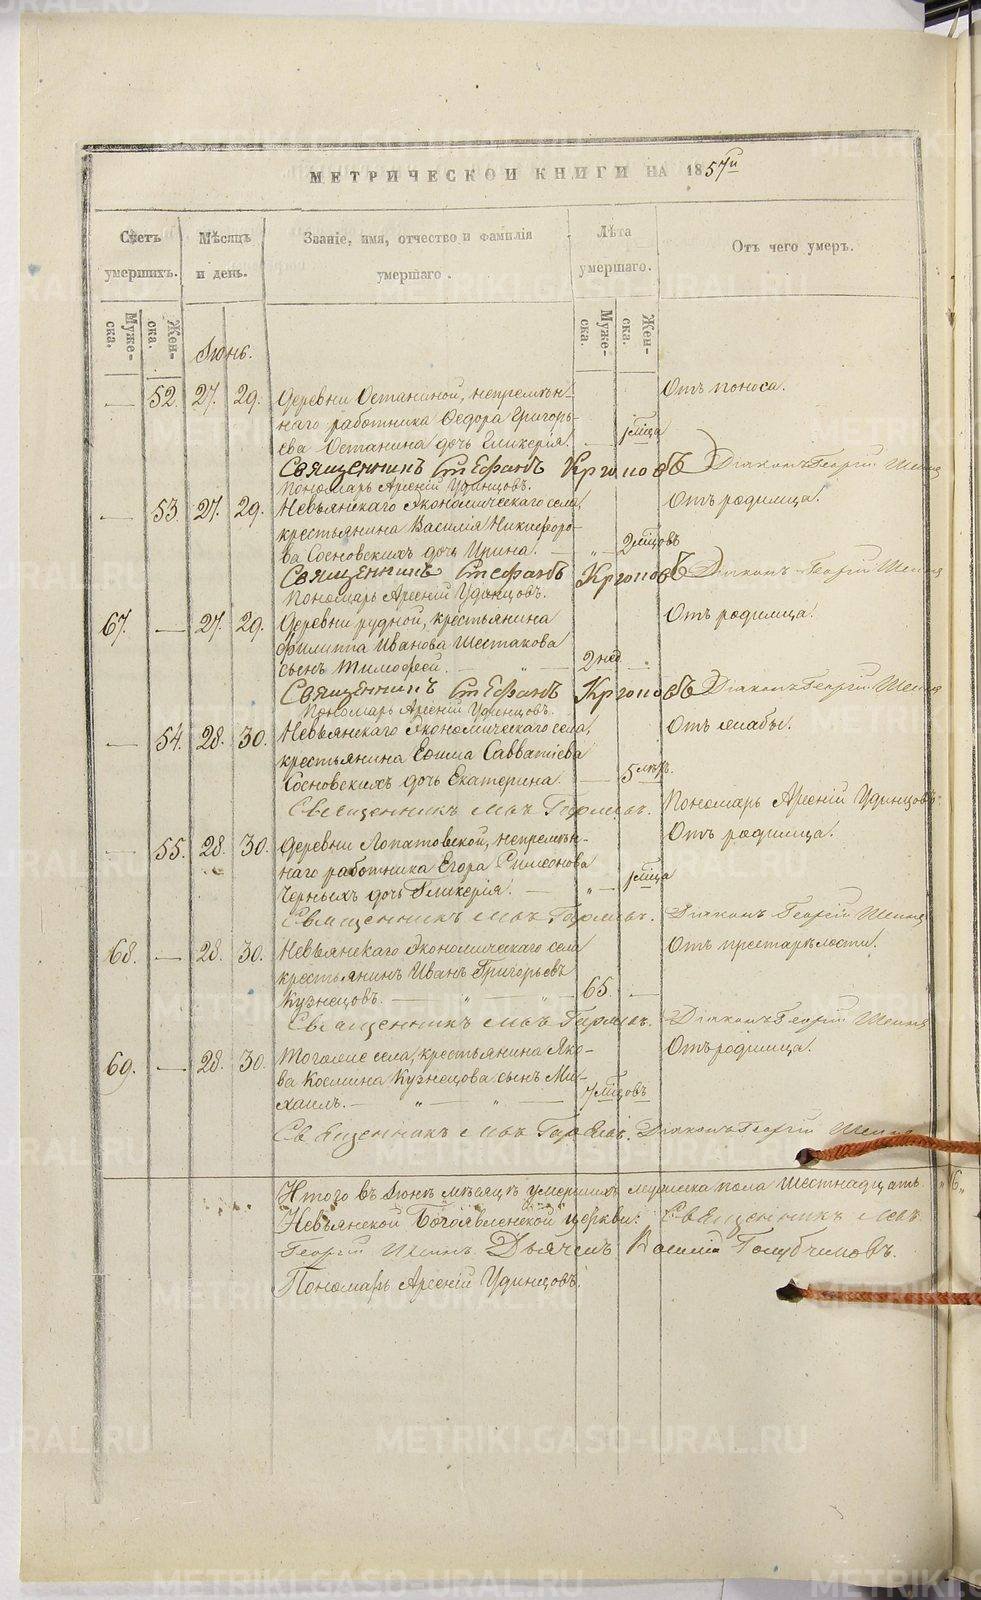 МЕТРИЧЕСКОЙ КНИГИ НА 1857й
Счетъ умершихъ.
Мѣсяцъ и день.
Званіе, имя, отчество и фамилія умершаго.
Лѣта умершаго.
Отъ чего умеръ.
Муже-ска.
Жен-ска.
Муже-ска.
Жен-ска.
Іюнь.
— 52. 27. 29. Деревни Останиной, непремѣн- Отъ поноса.
наго работника Ѳедора Григорь-
ева Останина дочь Гликерія. — 1 мѣца
Священникъ Стефанъ Діаконъ Георгій
Пономарь Арсеній Удинцовъ.
— 53. 27. 29. Невьянскаго Экономическаго села, Отъ родимца.
крестьянина Василія Никифоро-
ва Сосновскихъ дочь Ирина. — „ — 2 мѣцовъ
Священникъ Стефанъ Діаконъ Георгій
Пономарь Арсеній Удинцовъ.
67. — 27. 29. Деревни рудной, крестьянина Отъ родимца.
Филиппа Иванова Шестакова
сынъ Тимофей. — „ — 2 нед. „
Священникъ Стефанъ Діаконъ Георгій
Пономарь Арсеній Удинцовъ.
— 54. 28. 30. Невьянскаго Экономическаго села, Отъ слабы.
крестьянина Ефима Савватіева
Сосновскихъ дочь Екатерина. — 5
Священникъ Пономарь Арсеній Удинцовъ.
— 55. 28. 30. Деревни Лопатовской, непремѣн- Отъ родимца.
наго работника Егора Симеонова
Черныхъ дочь Гликерія. — „ — 1 мѣца
Священникъ Діаконъ Георгій
68. — 28. 30. Невьянскаго Экономическаго села Отъ престарѣлости.
крестьянинъ Иванъ Григорьевъ
Кузнецовъ. — „ — „ — 65. —
Священникъ Діаконъ Георгій
69. — 28. 30. Тогоже села, крестьянина Яко- Отъ родимца.
ва Космина Кузнецова сынъ Ми-
хаилъ. — „ — „ — 7 мѣцовъ
Священникъ Діаконъ Георгій
Итого въ Іюнѣ мѣсяцѣ умершихъ мужеска пола шестнадцать. „16„
Невьянской Богоявленской церкви: Священникъ
Георгій Дьячекъ Василій
Пономарь Арсеній Удинцовъ.
METRIKI.GASO-URAL.RU